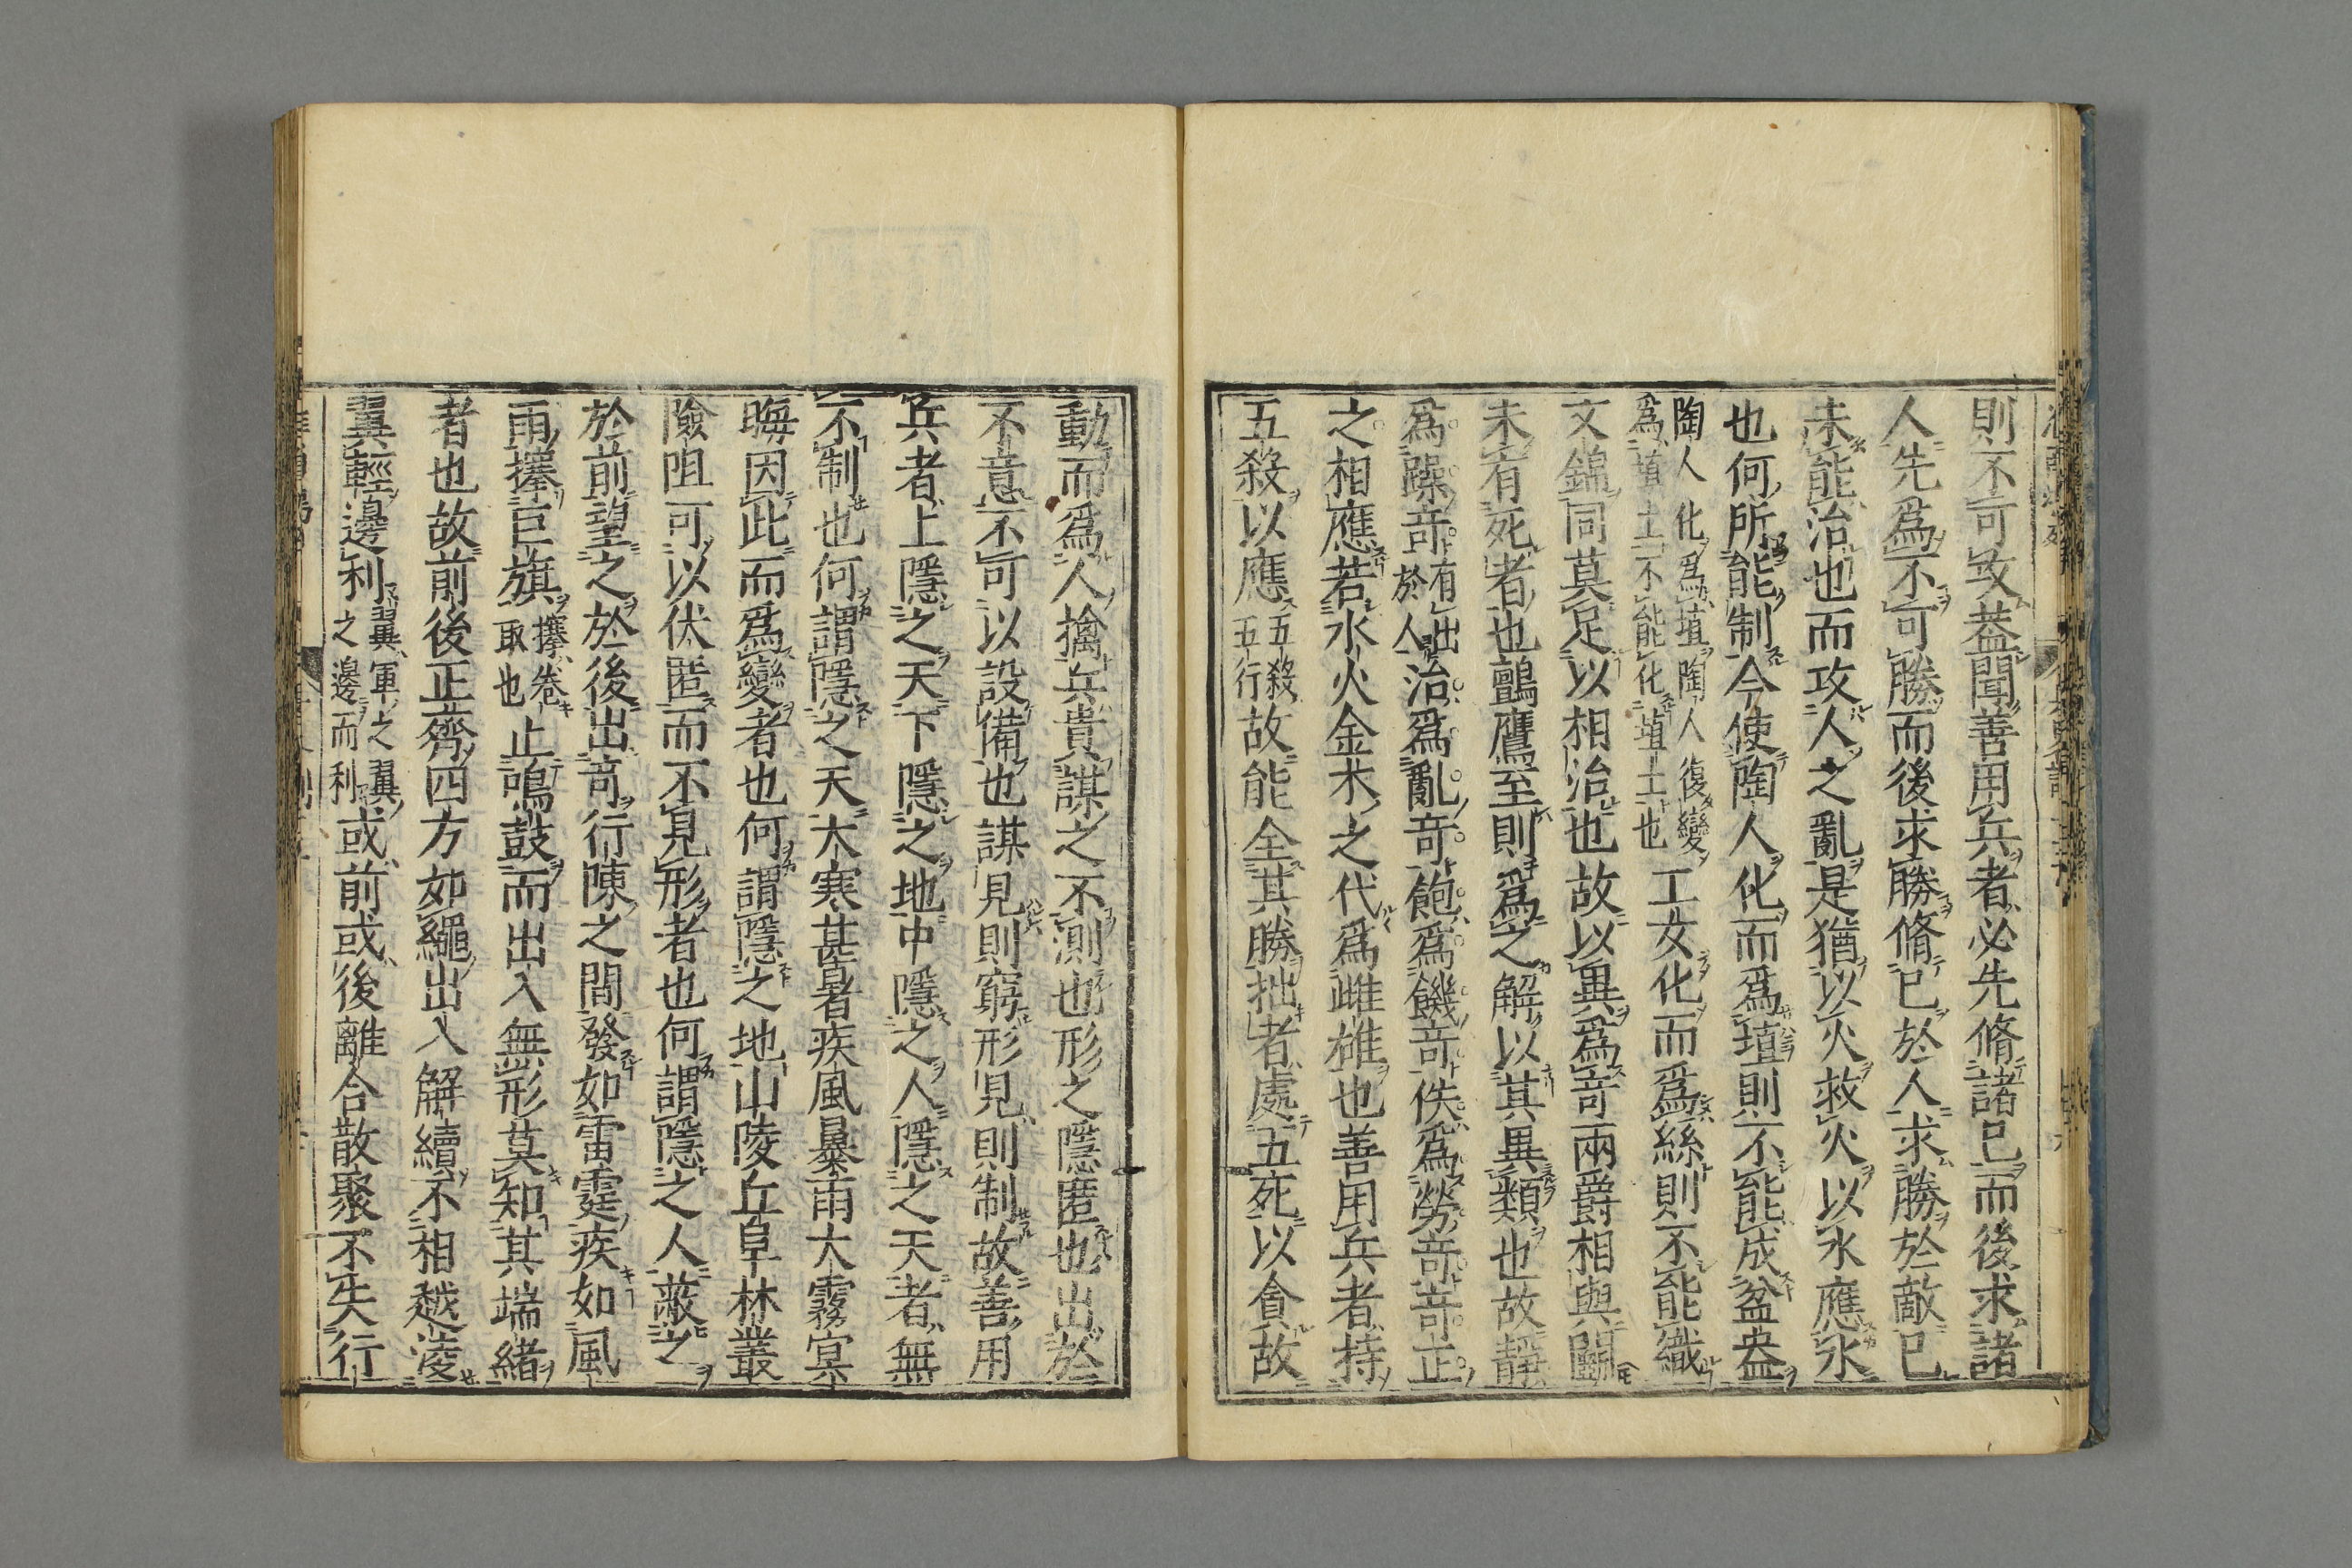 則不可攻蓋聞善用兵者必先脩諸已而後求諸
人先爲不可勝而後求勝脩已於人求勝於敵已
未能治也而攻人之亂是猶以火救火以水應水
也何所能制今使陶人化而爲埴則不能成盆盎
陶人化爲埴陶人復變
爲埴土不能化埴土也
工女化而爲絲則不能織
文錦同莫足以相治也故以異爲竒兩爵相與鬭
未有死者也鸇鷹至則爲之解以其異類也故靜
爲躁竒有出
於人
治爲亂竒飽爲饑竒佚爲勞竒竒正
之相應若水火金木之代爲雌雄也善用兵者持
五殺以應五殺
五行
故能全其勝拙者處五死以貪故
動而爲人擒兵貴謀之不測也形之隱匿也出於
不意不可以設備也謀見則窮形見則制故善用
兵者上隱之天下隱之地中隱之人隱之天者無
不制也何謂隱之天大寒甚暑疾風暴雨大霧冥
晦因此而爲變者也何謂隱之地山陵丘阜林叢
險阻可以伏匿而不見形者也何謂隱之人蔽之
於前望之於後出竒行陳之間發如雷霆疾如風
雨搴巨旗搴卷
取也
止鳴鼓而出入無形莫知其端緒
者也故前後正齊四方如繩出入解續不相越淩
翼輕邊利翼軍之翼
之邊而利
或前或後離合散聚不失行